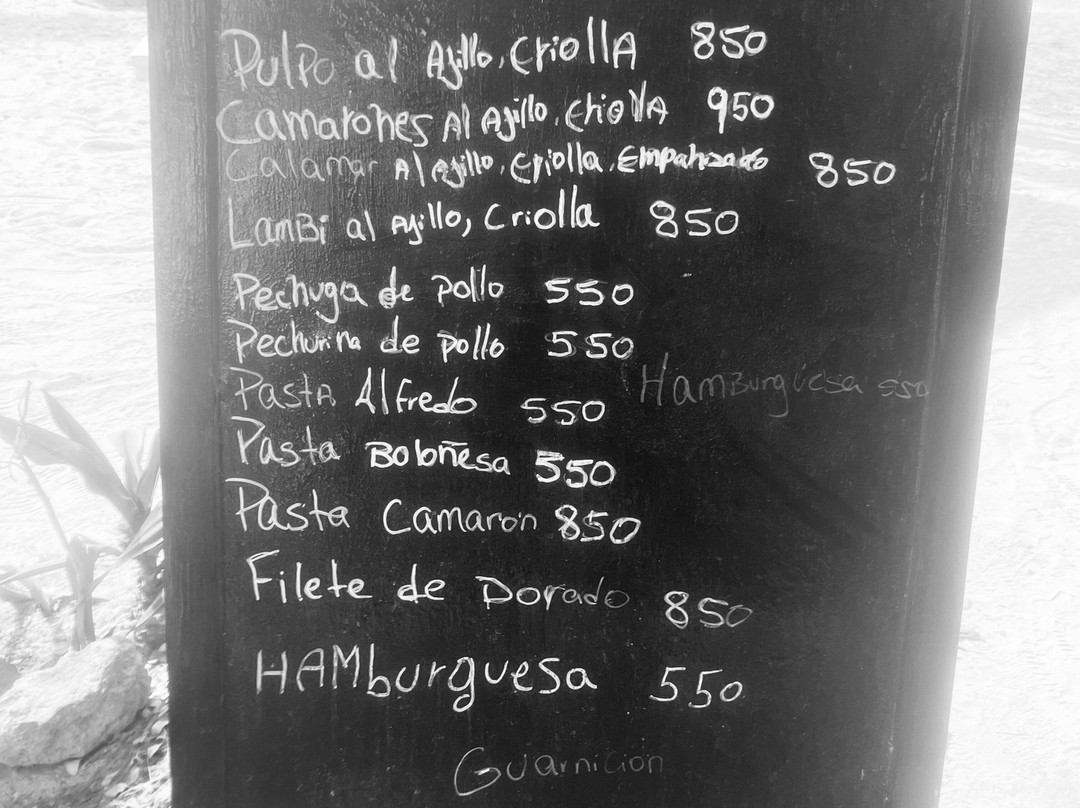 Pulpo al Ajillo, CriollA 850
Camarones Al Ajillo, CriollA 950
Calamar Al Ajillo, Criolla, Empanizado 850
LamBi al Ajillo, Criolla 850
Pechuga de pollo 550
Pechurina de pollo 550
PastA Alfredo 550
HamBurguesa 550
Pasta Boloñesa 550
Pasta Camaron 850
Filete de Dorado 850
HAMburguesa 550
Guarnición